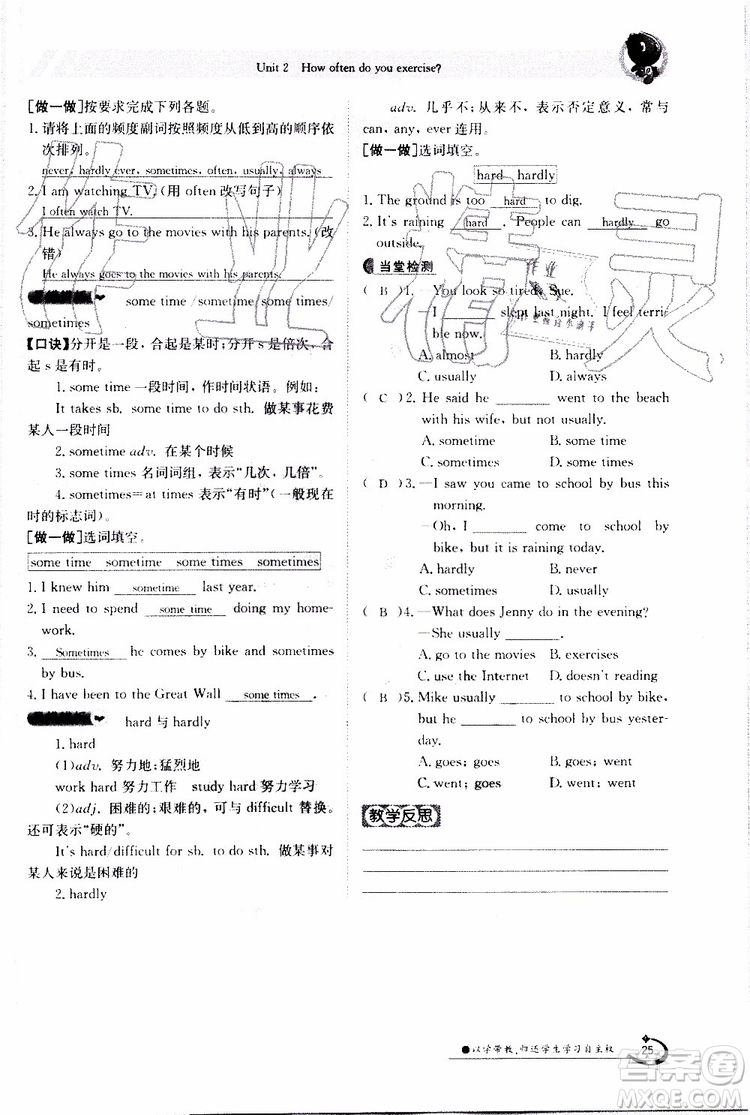 Unit 2 How often do you exercise?
[做一做]按要求完成下列各题。
1. 请将上面的频度副词按照频度从低到高的顺序依
次排列。
never, hardly ever, sometimes, often, usually, always
2. I am watching TV. (用 often 改写句子)
I often watch TV.
3. He always go to the movies with his parents. (改
错)
He always goes to the movies with his parents.
some time /sometime/some times/
sometimes
[口诀]分开是一段，合起是某时；分开 s 是倍次，合
起 s 是有时。
1. some time 一段时间，作时间状语。例如：
It takes sb. some time to do sth. 做某事花费
某人一段时间
2. sometime adv. 在某个时候
3. some times 名词词组，表示“几次，几倍”。
4. sometimes=at times 表示“有时”(一般现在
时的标志词)。
[做一做]选词填空。
some time sometime some times sometimes
1. I knew him sometime last year.
2. I need to spend some time doing my home-
work.
3. Sometimes he comes by bike and sometimes
by bus.
4. I have been to the Great Wall some times .
hard 与 hardly
1. hard
(1)adv. 努力地；猛烈地
work hard 努力工作 study hard 努力学习
(2)adj. 困难的；艰难的，可与 difficult 替换。
还可表示“硬的”。
It's hard/difficult for sb. to do sth. 做某事对
某人来说是困难的
2. hardly
adv. 几乎不；从来不，表示否定意义，常与
can, any, ever 连用。
[做一做]选词填空。
hard hardly
1. The ground is too hard to dig.
2. It's raining hard . People can hardly go
outside.
当堂检测
( B )1. —You look so tired, Sue.
—I ______ slept last night. I feel terri-
ble now.
A. almost B. hardly
C. usually D. always
( C )2. He said he ______ went to the beach
with his wife, but not usually.
A. sometime B. some time
C. sometimes D. some times
( D )3. —I saw you came to school by bus this
morning.
—Oh, I ______ come to school by
bike, but it is raining today.
A. hardly B. never
C. sometimes D. usually
( B )4. —What does Jenny do in the evening?
—She usually ______.
A. go to the movies B. exercises
C. use the Internet D. doesn't reading
( B )5. Mike usually ______ to school by bike,
but he ______ to school by bus yester-
day.
A. goes; goes B. goes; went
C. went; goes D. went; went
教学反思
●以学带教，归还学生学习自主权
25
作业精灵
答案圈
MXQE.COM